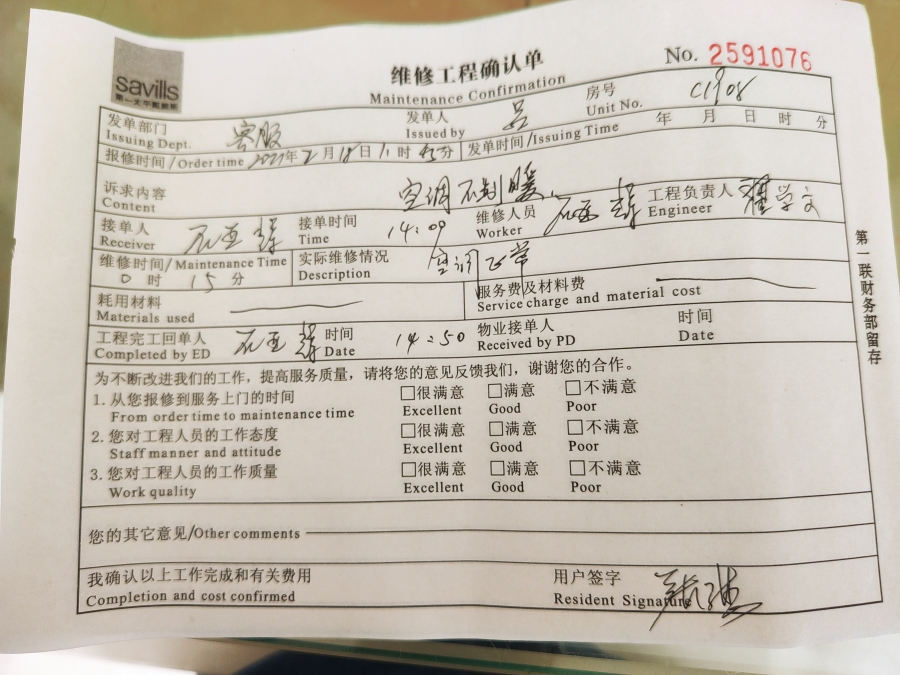 savills
第一太平戴维斯
维修工程确认单
Maintenance Confirmation
No. 2591076
发单部门 客服 发单人 吕 房号 C1908
Issuing Dept. Issued by Unit No.
报修时间/Order time 2021年2月18日 时 分 发单时间/Issuing Time 年 月 日 时 分
诉求内容 空调不制暖
Content
接单人 石亚辉 接单时间 14:09 维修人员 石亚辉 工程负责人 翟学文
Receiver Time Worker Engineer
维修时间/Maintenance Time 实际维修情况 空调正常
0时15分 Description
耗用材料 服务费及材料费
Materials used Service charge and material cost
工程完工回单人 石亚辉 时间 14:50 物业接单人 时间
Completed by ED Date Received by PD Date
为不断改进我们的工作，提高服务质量，请将您的意见反馈我们，谢谢您的合作。
1. 从您报修到服务上门的时间 □很满意 □满意 □不满意
From order time to maintenance time Excellent Good Poor
2. 您对工程人员的工作态度 □很满意 □满意 □不满意
Staff manner and attitude Excellent Good Poor
3. 您对工程人员的工作质量 □很满意 □满意 □不满意
Work quality Excellent Good Poor
您的其它意见/Other comments
我确认以上工作完成和有关费用 用户签字
Completion and cost confirmed Resident Signature
第一联财务部留存